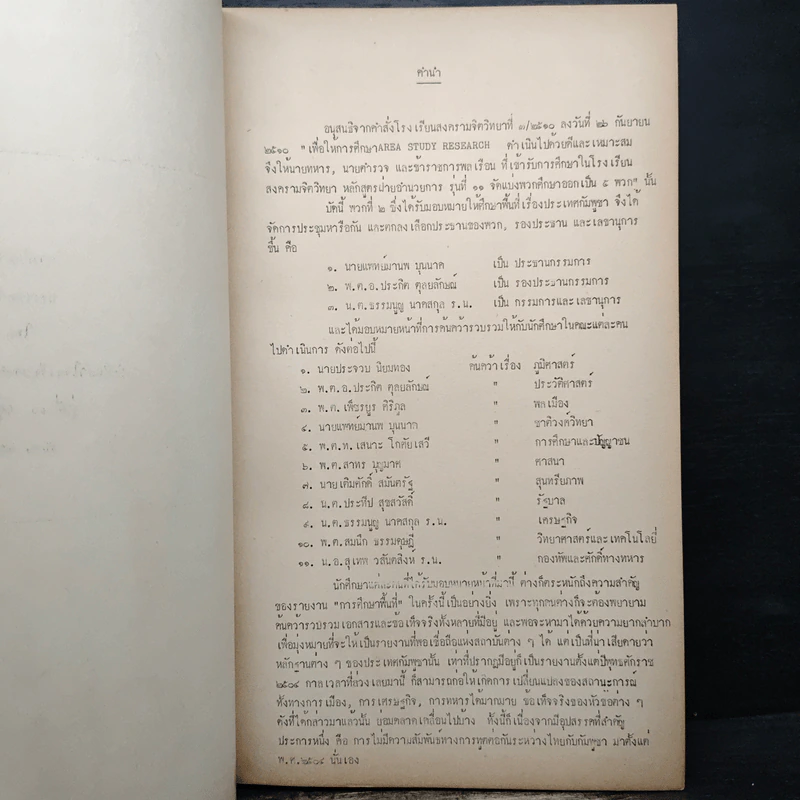 คำนำ
อนุสนธิจากคำสั่งโรงเรียนสงครามจิตวิทยาที่ ๓/๒๕๑๐ ลงวันที่ ๒๖ กันยายน
๒๕๑๐ " เพื่อให้การศึกษาAREA STUDY RESEARCH ดำเนินไปด้วยดีและเหมาะสม
จึงให้นายทหาร, นายตำรวจ และข้าราชการพลเรือน ที่เข้ารับการศึกษาในโรงเรียน
สงครามจิตวิทยา หลักสูตรฝ่ายอำนวยการ รุ่นที่ ๑๑ จัดแบ่งพวกศึกษาออกเป็น ๕ พวก" นั้น
บัดนี้ พวกที่ ๒ ซึ่งได้รับมอบหมายให้ศึกษาพื้นที่เรื่องประเทศกัมพูชา จึงได้
จัดการประชุมหารือกัน และตกลงเลือกประธานของพวก, รองประธาน และเลขานุการ
ขึ้น คือ
๑. นายแพทย์มานพ บุนนาค เป็น ประธานกรรมการ
๒. พ.ต.อ.ประกิต ตุลยลักษณ์ เป็น รองประธานกรรมการ
๓. น.ต.ธรรมนูญ นาคสกุล ร.น. เป็น กรรมการและเลขานุการ
และได้มอบหมายหน้าที่การค้นคว้ารวบรวมให้กับนักศึกษาในคณะแต่ละคน
ไปดำเนินการ ดังต่อไปนี้
๑. นายประจวบ นิยมทอง ค้นคว้าเรื่อง ภูมิศาสตร์
๒. พ.ต.อ.ประกิต ตุลยลักษณ์ " ประวัติศาสตร์
๓. พ.ต.เพ็ชรบูร ศิริกุล " พลเมือง
๔. นายแพทย์มานพ บุนนาค " ชาติวงศ์วิทยา
๕. พ.ต.ท.เสนาะ โกศัยเสวี " การศึกษาและปัญญาชน
๖. พ.ต.สาทร บุญมาค " ศาสนา
๗. นายเติมศักดิ์ สมันตรัฐ " สุนทรียภาพ
๘. น.ต.ประทีป สุขสวัสดิ์ " รัฐบาล
๙. น.ต.ธรรมนูญ นาคสกุล ร.น. " เศรษฐกิจ
๑๐. พ.ต.สมนึก ธรรมดุษฎี " วิทยาศาสตร์และเทคโนโลยี่
๑๑. น.อ.สุเทพ วสันตสิงห์ ร.น. " กองทัพและศักดิ์ทางทหาร
นักศึกษาแต่ละคนที่ได้รับมอบหมายหน้าที่มานี้ ต่างก็ตระหนักถึงความสำคัญ
ของรายงาน "การศึกษาพื้นที่" ในครั้งนี้เป็นอย่างยิ่ง เพราะทุกคนต่างก็จะต้องพยายาม
ค้นคว้ารวบรวมเอกสารและข้อเท็จจริงทั้งหลายที่มีอยู่ และพอจะหามาได้ด้วยความยากลำบาก
เพื่อมุ่งหมายที่จะให้เป็นรายงานที่พอเชื่อถือแห่งสถาบันต่าง ๆ ได้ แต่เป็นที่น่าเสียดายว่า
หลักฐานต่าง ๆ ของประเทศกัมพูชานั้น เท่าที่ปรากฏมีอยู่ก็เป็นรายงานตั้งแต่ปีพุทธศักราช
๒๕๐๔ กาลเวลาที่ล่วงเลยมานี้ ก็สามารถก่อให้เกิดการเปลี่ยนแปลงของสถานะการณ์
ทั้งทางการเมือง, การเศรษฐกิจ, การทหารได้มากมาย ข้อเท็จจริงของหัวข้อต่าง ๆ
ดังที่ได้กล่าวมาแล้วนั้น ย่อมคลาดเคลื่อนไปบ้าง ทั้งนี้ก็เนื่องจากมีอุปสรรคที่สำคัญ
ประการหนึ่ง คือ การไม่มีความสัมพันธ์ทางการทูตต่อกันระหว่างไทยกับกัมพูชา มาตั้งแต่
พ.ศ.๒๕๐๔ นั่นเอง